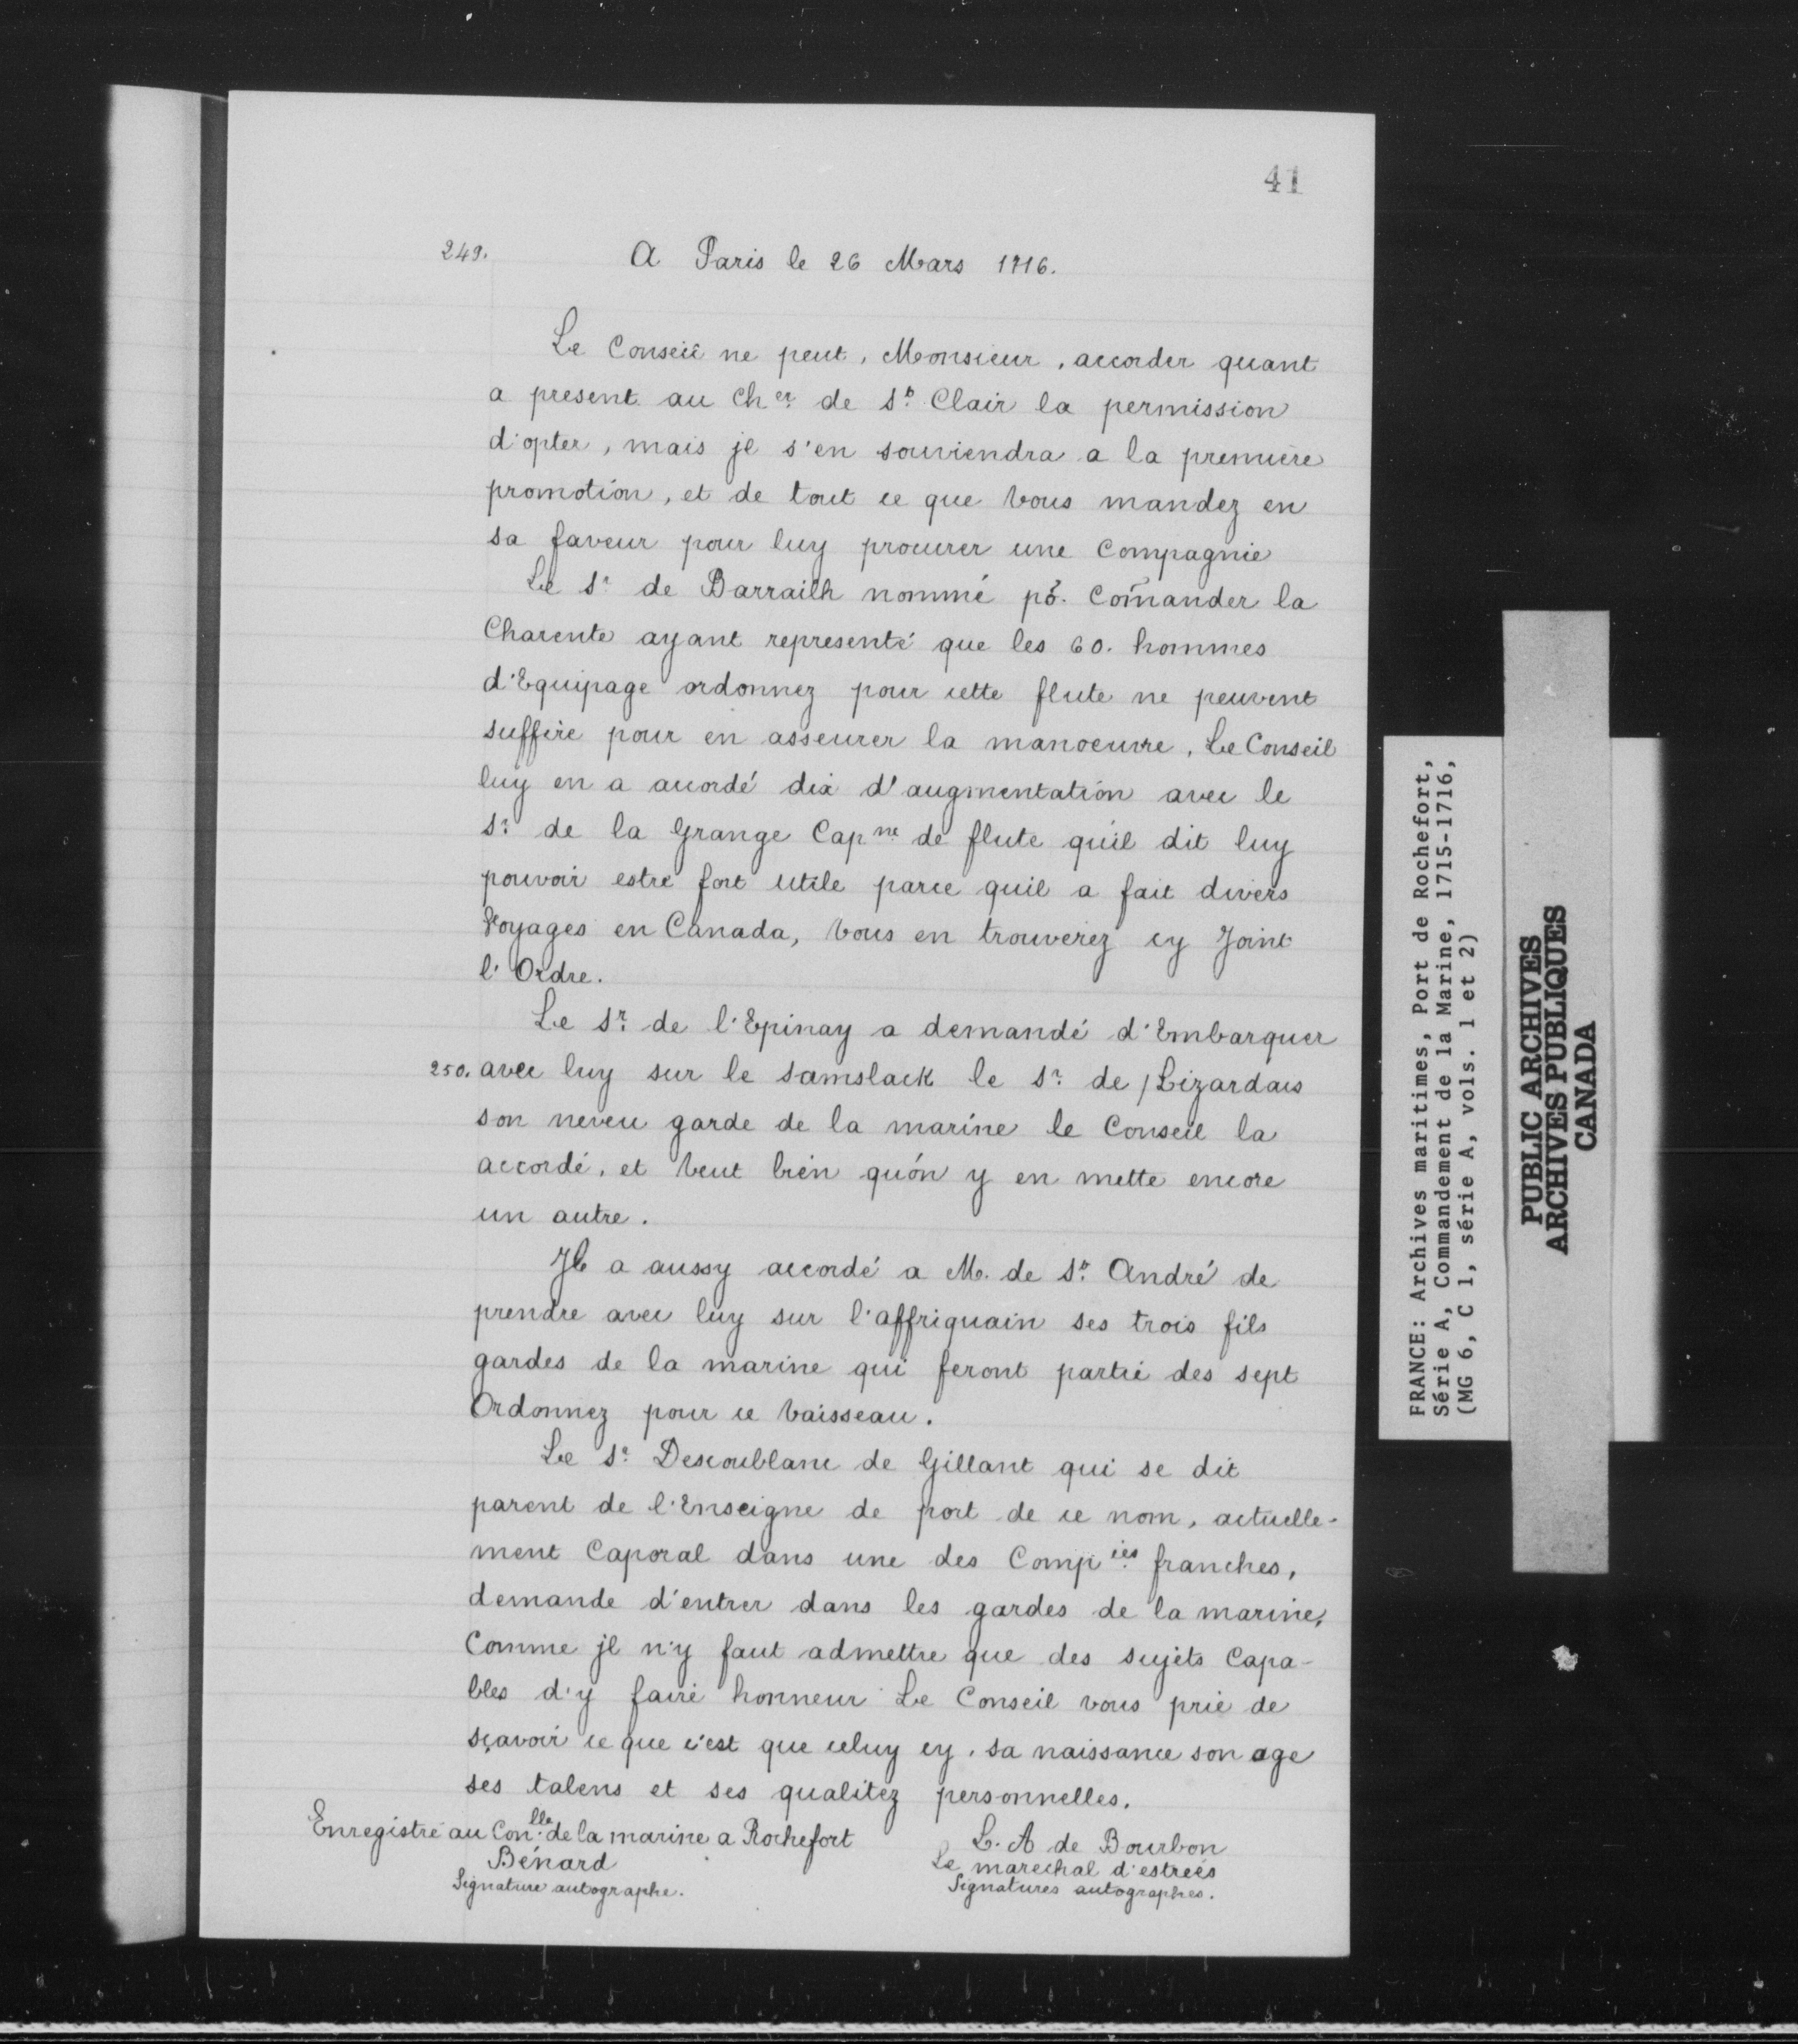 41
249. A Paris le 26 Mars 1716.
Le Conseil ne peut, Monsieur, accorder quant
a present au Cher. de St. Clair la permission
d'opter, mais jl s'en souviendra a la premiere
promotion, et de tout ce que vous mandez en
sa faveur pour luy procurer une Compagnie
Le Sr. de Barrailh nommé po. Com̃ander la
Charente ayant representé que les 60. hommes
d'Equipage ordonnez pour cette flute ne peuvent
suffire pour en asseurer la manoeuvre, Le Conseil
luy en a accordé dix d'augmentation avec le
Sr. de la Grange Capne de flute qu'il dit luy
pouvoir estre fort utile parce quil a fait divers
Voyages en Canada, vous en trouverez cy Joint
l'Ordre.
Le Sr. de l'Epinay a demandé d'Embarquer
250. avec luy sur le Samslack le Sr. de / Lizardais
son neveu garde de la marine le Conseil la
accordé, et veut bien qu'on y en mette encore
un autre.
Jl a aussy accordé a M. de St. André de
prendre avec luy sur l'affriquain ses trois fils
gardes de la marine qui feront partie des sept
Ordonnez pour ce vaisseau.
Le Sr. Descoublanc de Gillant qui se dit
parent de l'Enseigne de port de ce nom, actuelle-
ment Caporal dans une des Compies franches,
demande d'entrer dans les gardes de la marine,
Comme jl n'y faut admettre que des sujets Capa-
bles d'y faire honneur Le Conseil vous prie de
sçavoir ce que c'est que celuy cy, sa naissance son age
ses talens et ses qualitez personnelles.
Enregistré au Conlle. de la marine a Rochefort
Bénard
Signature autographe.
L. A de Bourbon
Le marechal d'estreés
Signatures autographes.
FRANCE: Archives maritimes, Port de Rochefort,
Série A, Commandement de la Marine, 1715-1716,
(MG 6, C 1, série A, vols. 1 et 2)
PUBLIC ARCHIVES
ARCHIVES PUBLIQUES
CANADA